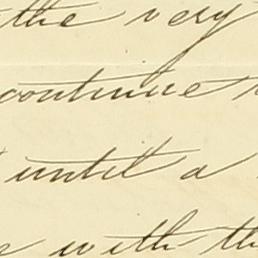 the very
continue
until a
with th